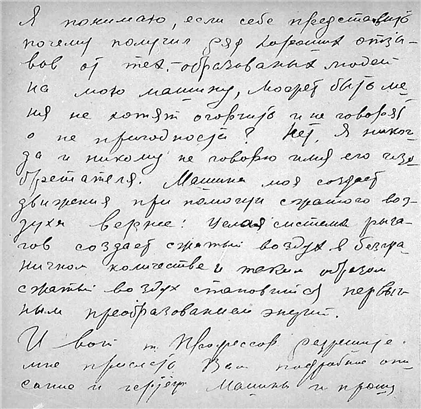 Я понимаю, если себе представить
почему получил ряд хороших отзы-
вов от тех.-образованых людей
на мою машину, может быть ме-
ня не хотят огорчить и не говорят
о не пригодности? Нет. Я никог-
да и никому не говорю имя его изо-
бретателя. Машина моя создает
движения при помощи сжатого воз-
духа верно! Целая система рыча-
гов создает сжатый воздух в безгра-
ничном количестве и таким образом
сжатый воздух становится первич-
ным преобразованием энергии.
И вот т. Профессор разрешите
мне прислать Вам подробное опи-
сание и чертеж Машины и прошу